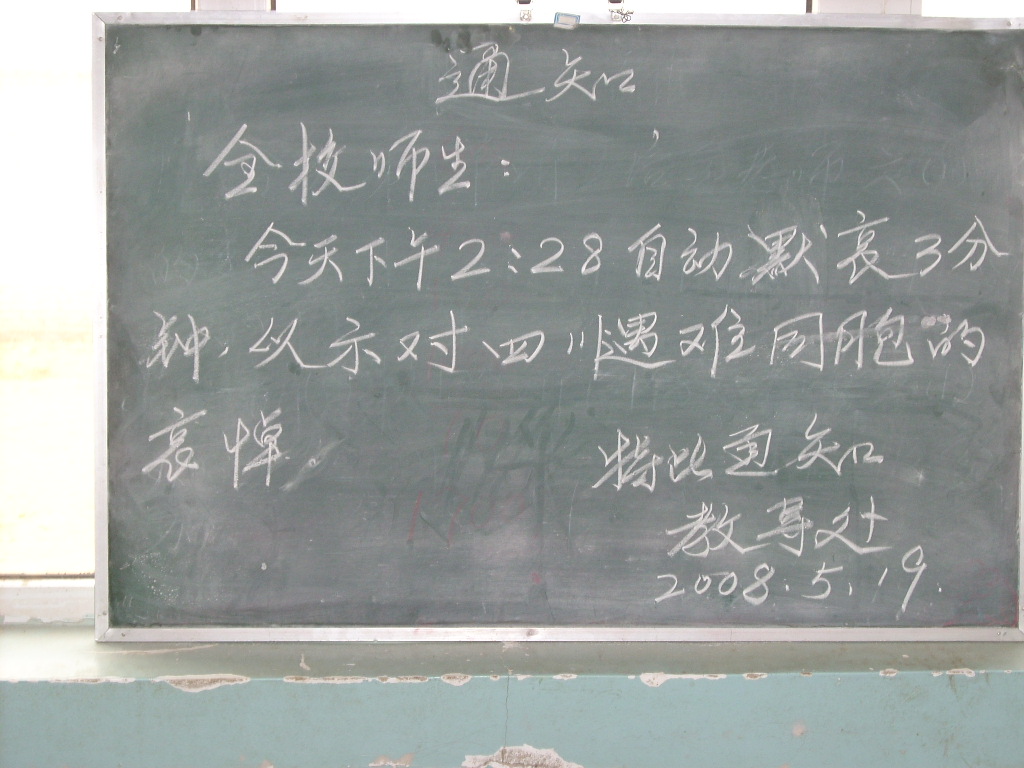 通知
全校师生:
今天下午2:28自动默哀3分
钟,以示对四川遇难同胞的
哀悼。
特此通知
教导处
2008.5.19.